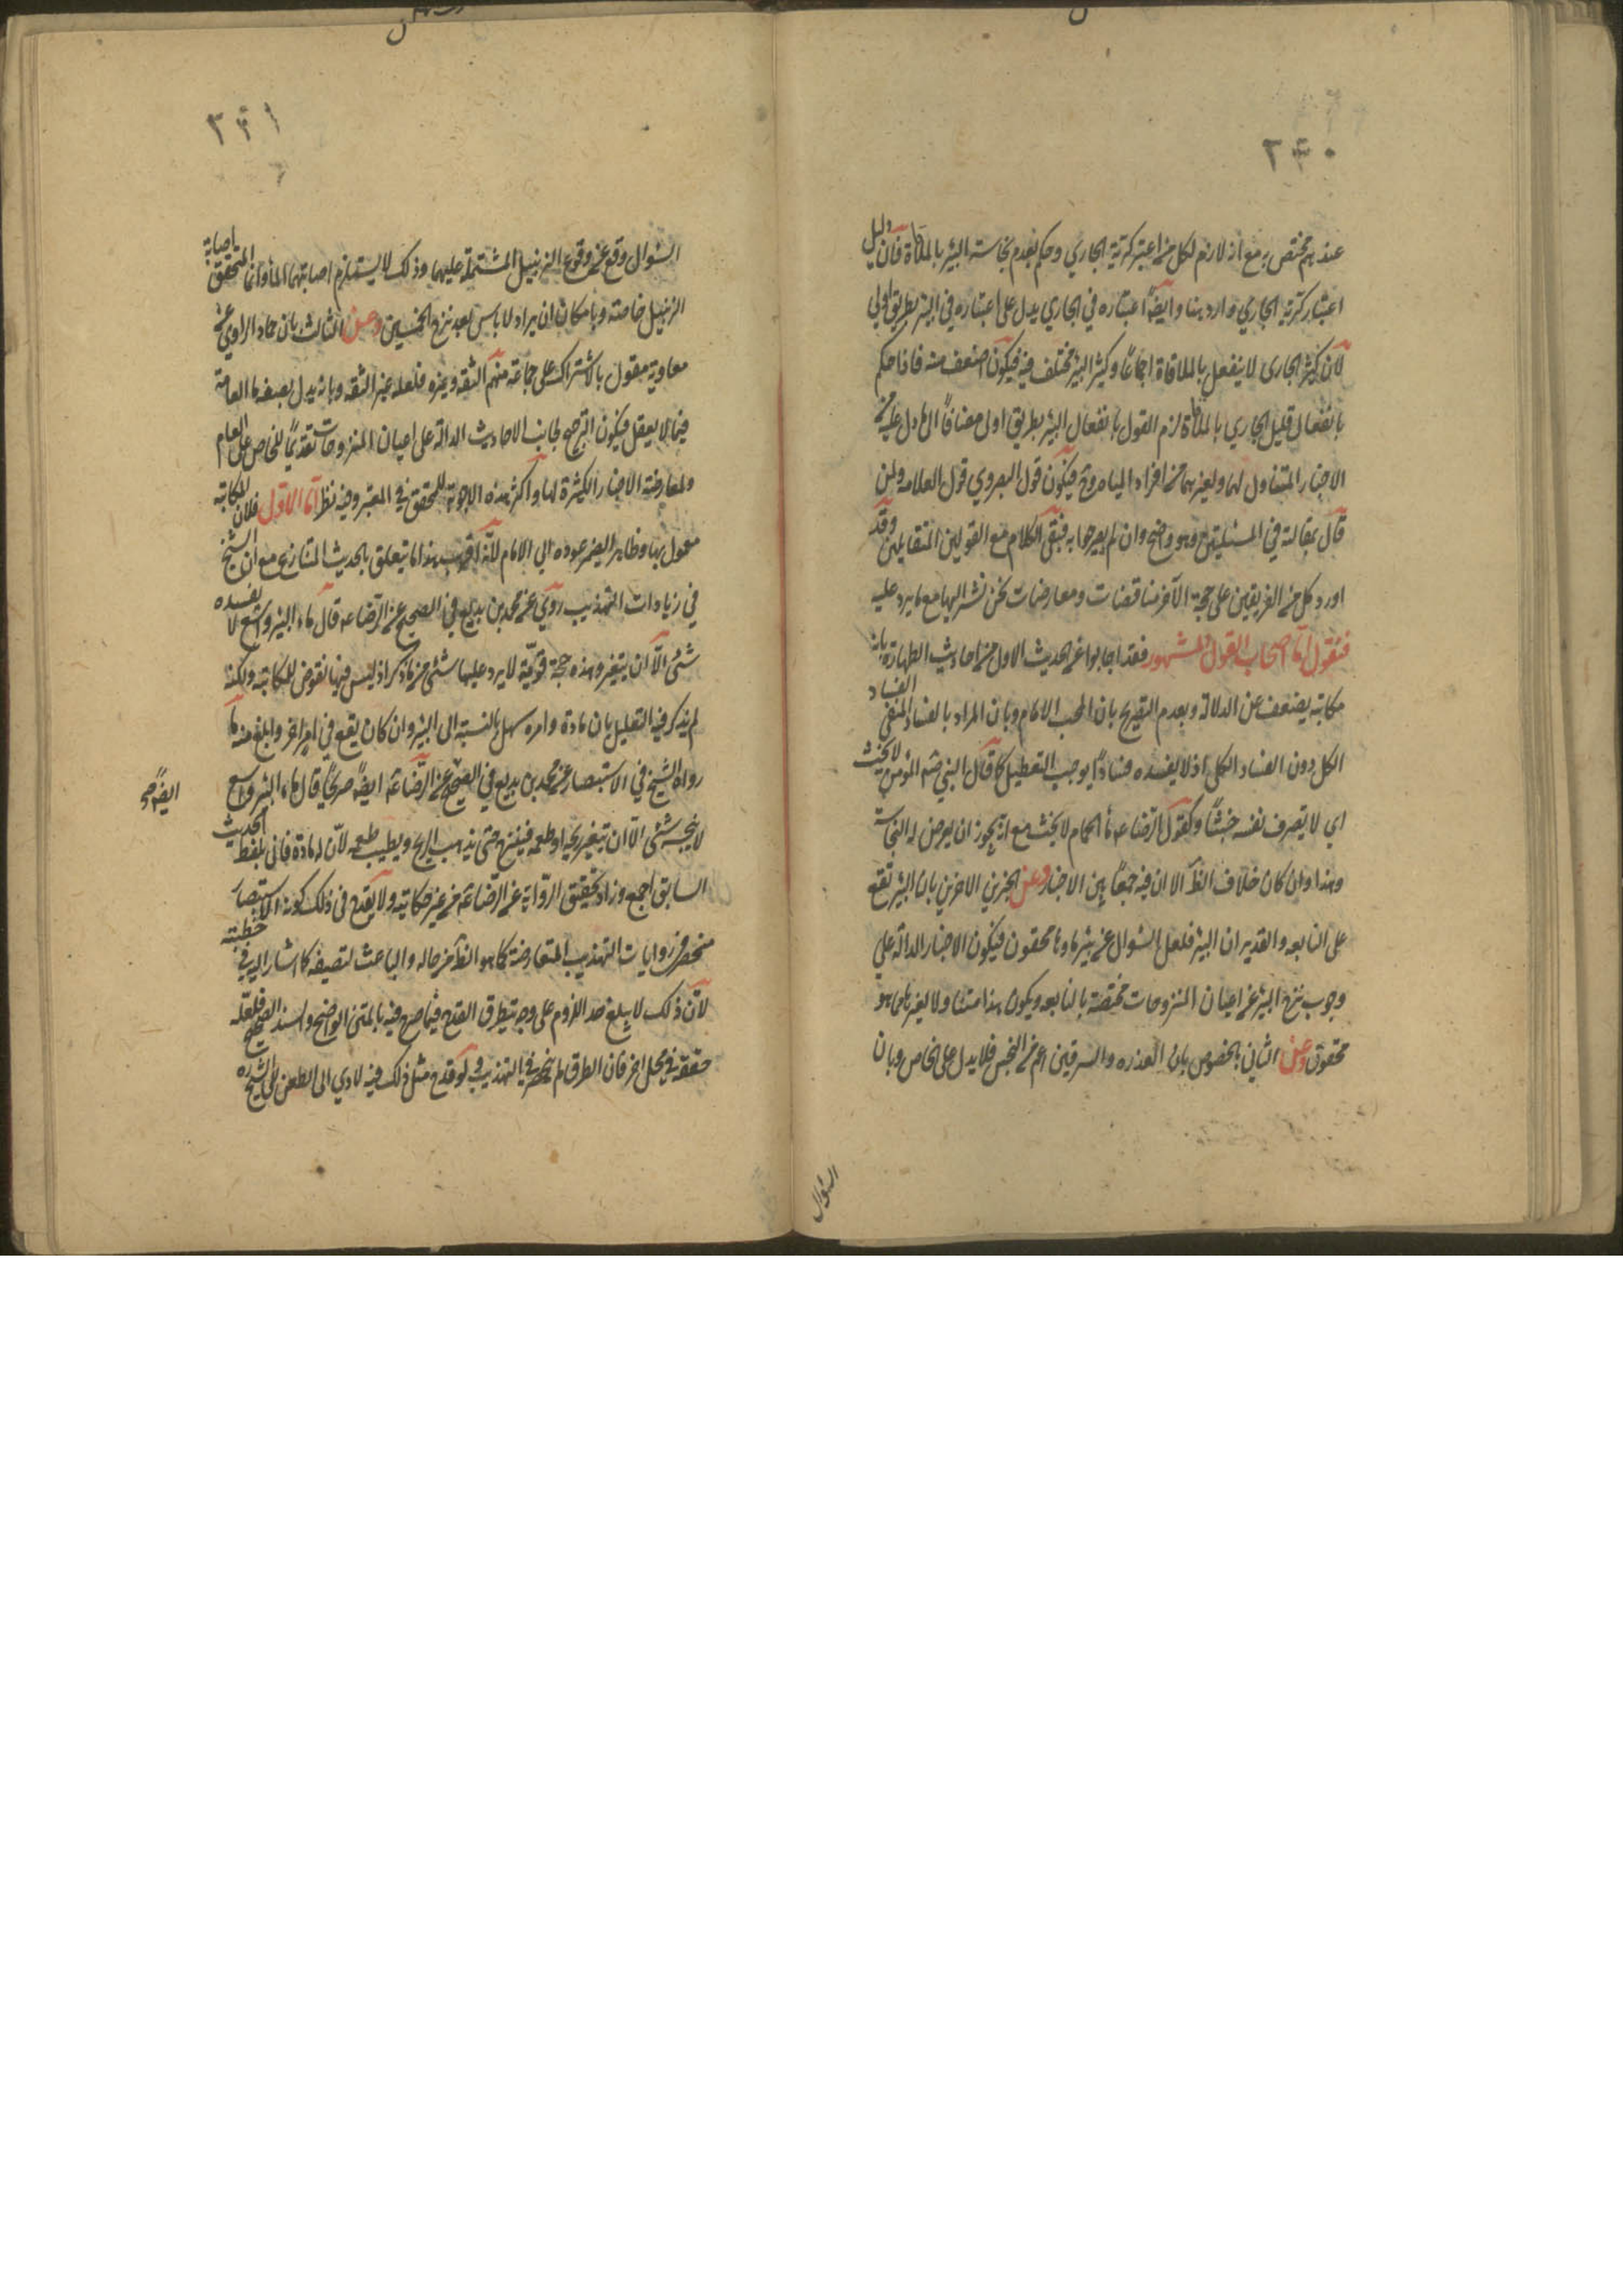 ٢٤٠
عندهم مختص به مع انه لازم لكل من اعتبر كرية الجاري وحكم بعدم نجاسة البئر بالملاقاة فان دليل
اعتبار كرية الجاري وارد هنا وايضا اعتباره في الجاري يدل على اعتباره في البئر بطريق اولى
لان كثير الجاري لا ينفعل بالملاقاة اجماعا وكثير البئر مختلف فيه فيكون اضعف منه فاذا حكم
بانفعال قليل الجاري بالملاقاة لزم القول بانفعال البئر بطريق اولى مضافا الى ما دل عليه من
الاخبار المتناول لهما ولغيرهما من افراد المياه وح فيكون قول البصروي قول العلامة ولمن
قال بمقالته في المسئلتين وهو واضح وان لم يصرحا به فبقى الكلام مع القولين المتقابلين وقد
اورد كل من الفريقين على حجة الآخر مناقضات ومعارضات نحن نشير اليها مع ما يرد عليه
فنقول اما اصحاب القول المشهور فقد اجابوا عن الحديث الاول من احاديث الطهارة بانه
مكاتبة يضعف عن الدلالة وبعدم التصريح بان المجيب الامام وبان المراد بالفساد المنفي الفساد
الكل دون الفساد الكلى اذ لا يفسده فسادا يوجب التعطيل كما قال النبي صم المؤمن لا يخبث
اي لا يصرف نفسه خبثا وكقول الرضا عه ماء الحمام لا يخبث مع انه يجوز ان يعرض له النجاسة
وهذا وان كان خلاف الظ الا ان فيه جمعا بين الاخبار وعن الخبرين الاخرين بان البئر تقع
على النابعه والغدير ان البئر فلعل السؤال عن بئر ماؤها محقون فيكون الاخبار الدالة على
وجوب نزح البئر عن اعيان المنزوحات مختصة بالنابعه ويكون هذا متنا ولا لغيرها مما هو
محقون وعن الثاني بالخصوص بان العذره والسرقين اعم من النجس فلا يدل على الخاص وبان
السؤال
٢٤١
السؤال وقع عن وقوع الزنبيل المشتملة عليهما وذلك لا يستلزم اصابتهما الماء وانما المتحقق اصابة
الزنبيل خاصة وبامكان ان يراد لا باس بعد نزح الخمسين وعن الثالث بان حماد الراوي عن
معاوية مقول بالاشتراك على جماعة منهم الثقة وغيره فلعله غير الثقه وبانه يدل بصيغة ما العامة
فيما لا يعقل فيكون الترجيح لجانب الاحاديث الدالة على اعيان المنزوحات تقديما للخاص على العام
ولمعارضته الاخبار الكثيرة لها واكثر هذه الاجوبة للمحقق في المعتبر وفيه نظر اما الاول فلان المكاتبة
معمول بها وظاهر الضمير عوده الى الامام لانه اقرب هذا ما يتعلق بالحديث المتنازع مع ان الشيخ
في زيادات التهذيب روى عن محمد بن بزيع في الصحيح عن الرضا عه قال ماء البئر واسع لا يفسده
شئ الا ان يتغير وهذه حجة قوية لا يرد عليها شئ مما ذكر اذ ليس فيها نقوض للمكاتبة ولكنه
لم يذكر فيه التعليل بان مادة وامره سهل بالنسبة الى البئر وان كان يقع في امر اخر وابلغ منه ما
رواه الشيخ في الاستبصار عن محمد بن بزيع في الصحيح عن الرضا عه ايضا صريحا قال ماء البئر واسع
ايضا صح
لا ينجسه شئ الا ان يتغير ريحه او طعمه فينزح حتى يذهب الريح ويطيب طعمه لان له مادة فاتى بلفظ الحديث
السابق اجمع وزاد تحقيق الرواية عن الرضا عه من غير مكاتبه ولا يقدح في ذلك كون الاستبصار
منحصر في روايات التهذيب المتعارضة كما هو الظ من حاله والباعث لتصنيفه كما اشار اليه في خطبته
لان ذلك لا يبلغ حد اللزوم على وجه يتطرق القدح فيما صرح فيه بالمتن الواضح والسند الصحيح فلعله
حققه في محل اخر فان الطرق لم ينحصر في التهذيب ولو قدح مثل ذلك فيه لادى الى الطعن على الشيخ ره